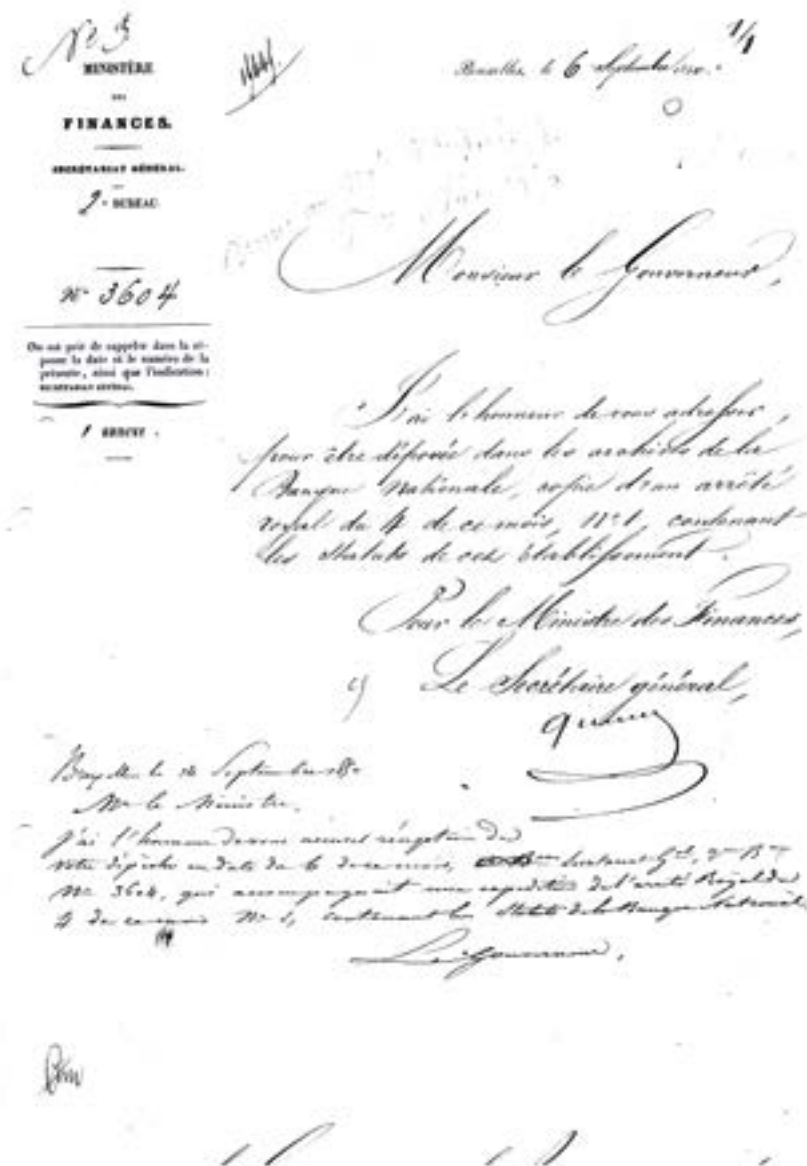 N° 3
MINISTÈRE
DES
FINANCES.
SECRÉTARIAT GÉNÉRAL.
2e BUREAU.
N° 3604
On est prié de rappeler dans la ré-
ponse la date et le numéro de la
présente, ainsi que l'indication :
SECRÉTARIAT GÉNÉRAL.
1
1/1
Bruxelles, le 6 Septembre
Monsieur le Gouverneur,
J'ai l'honneur de vous adresser,
pour être déposée dans les archives de la
Banque Nationale, copie d'un arrêté
royal du 4 de ce mois, N° 1, contenant
les Statuts de cet établissement.
Pour le Ministre des Finances,
Le Secrétaire général,
le Septembre
Mr le Ministre,
J'ai l'honneur de vous accuser réception de
votre dépêche en date du 6 de ce mois,
N° 3604, qui accompagnait une expédition de l'arrêté Royal du
4 de ce mois N° 1, contenant les Statuts de la Banque Nationale.
Le Gouverneur,